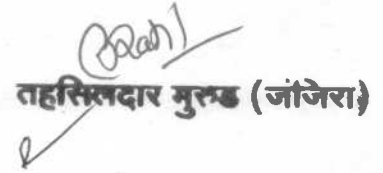 तहसिलदार मुरुड (जंजिरा)